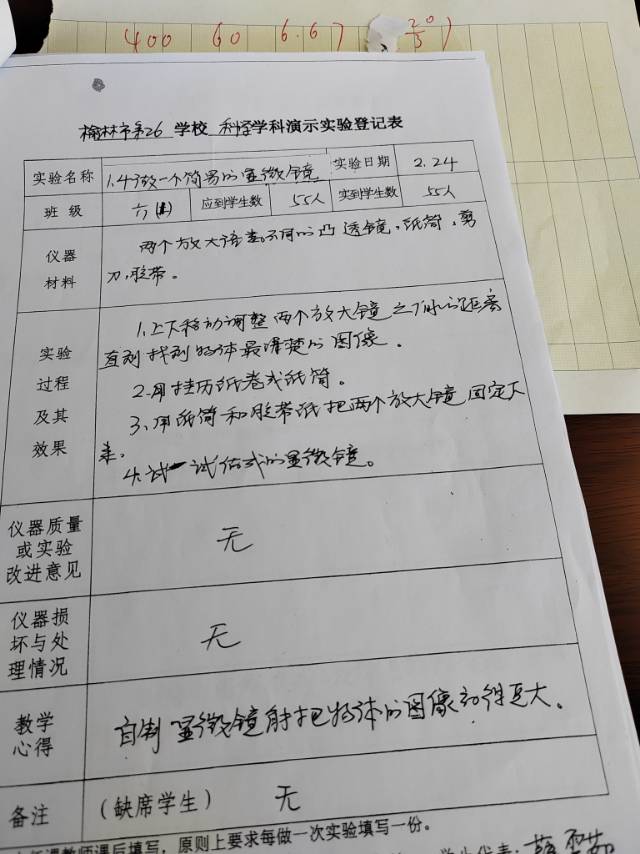 400 60 6.67 20/3)
榆林市第26 学校 科学学科演示实验登记表
实验名称 1.4做一个简易的显微镜 实验日期 2.24
班 级 六 应到学生数 55人 实到学生数 55人
仪器 两个放大倍 不同的凸透镜,纸筒,剪
材料 刀,胶带。
1.上下移动调整两个放大镜之间的距离
实验 直到找到物体最清楚的图像。
过程 2.用挂历纸卷成纸筒。
及其 3.用纸筒和胶带纸把两个放大镜固定下
效果 来。
4.试一试 的显微镜。
仪器质量
或实验 无
改进意见
仪器损
坏与处 无
理情况
教学 自制显微镜能把物体的图像 得更大。
心得
备注 (缺席学生) 无
任课教师课后填写,原则上要求每做一次实验填写一份。
学生代表: